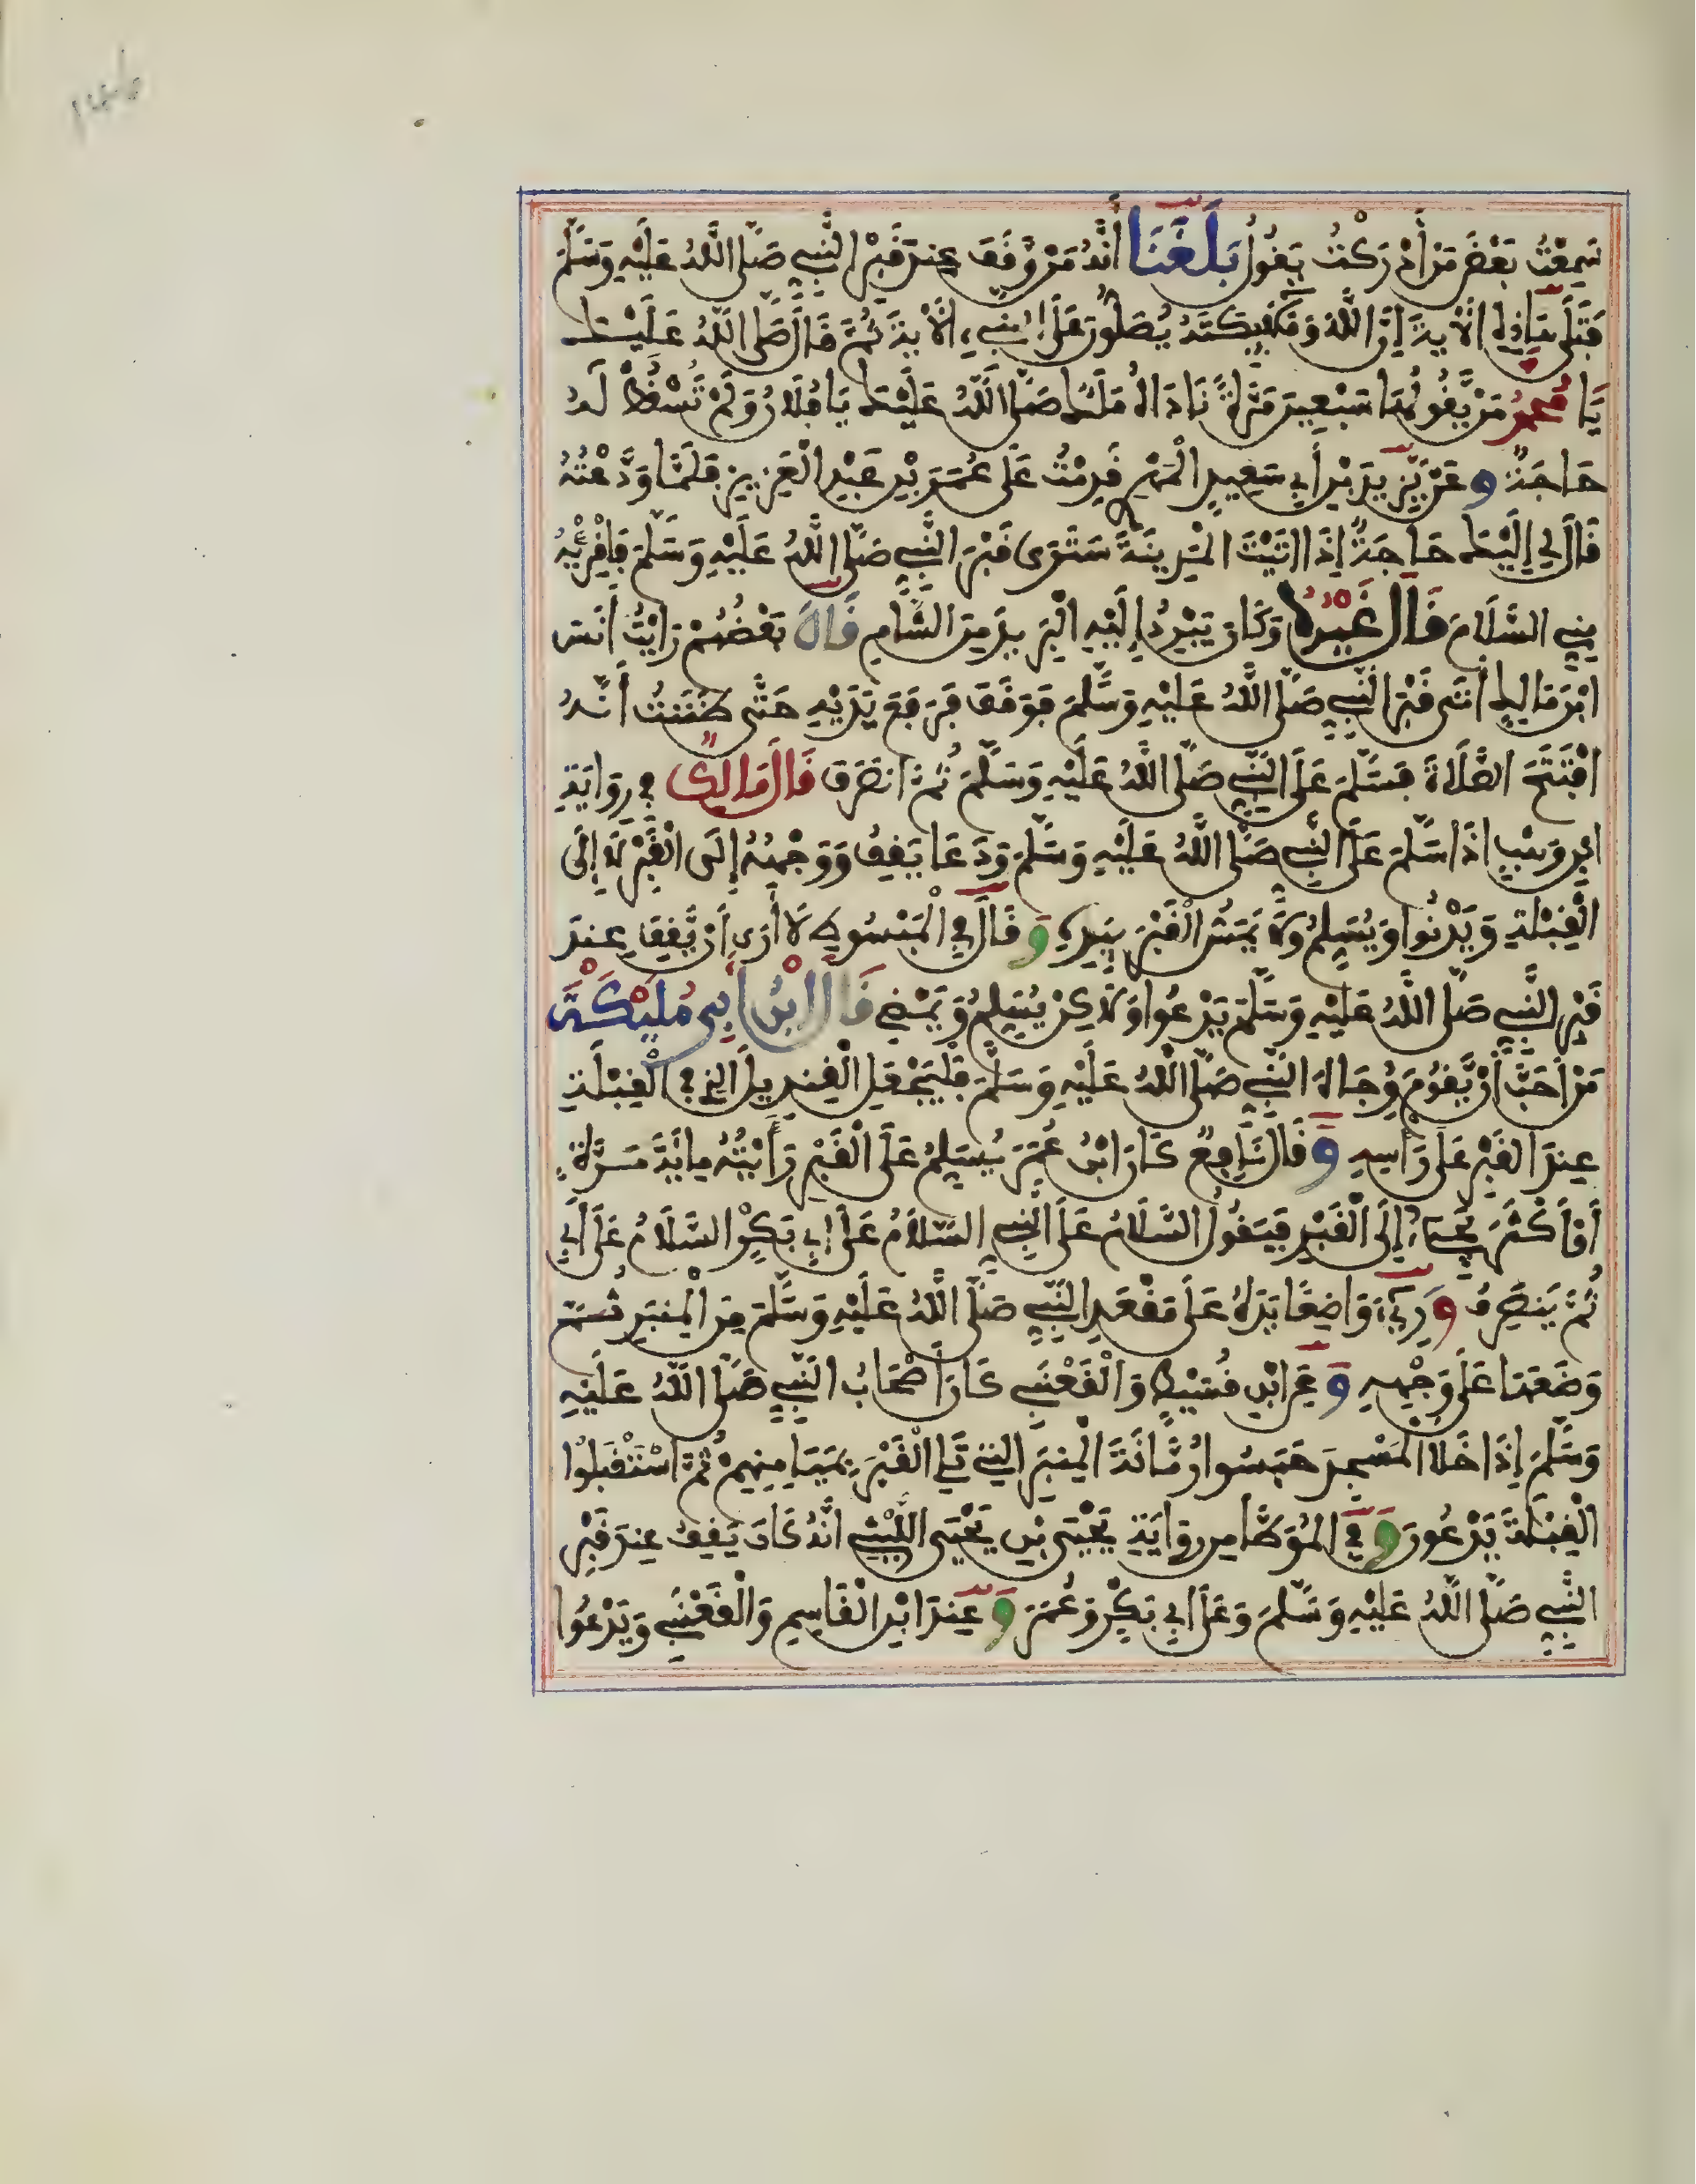 سَمِعْتُ بَعْضَ مَنْ أَدْرَكْتُ يَقُولُ بَلَغَنَا أَنَّهُ مَنْ وَّقَفَ عِنْدَ قَبْرِ النَّبِيِّ صَلَّى اللَّهُ عَلَيْهِ وَسَلَّمَ
فَتَلَى هَاذِهِ الْآيَةَ إِنَّ اللَّهَ وَمَلَٰئِكَتَهُ يُصَلُّونَ عَلَى النَّبِيءِ الْآيَةَ ثُمَّ قَالَ صَلَّى اللَّهُ عَلَيْكَ
يَا مُحَمَّدُ مَنْ يَّقُولُهَا سَبْعِينَ مَرَّةً نَادَاهُ مَلَكٌ صَلَّى اللَّهُ عَلَيْكَ يَا فُلَانُ وَلَمْ تَسْقُطْ لَهُ
حَاجَةٌ وعَنْ يَّزِيدَ بْنِ أَبِي سَعِيدٍ الْمَهْرِي قَدِمْتُ عَلَى عُمَرَ بْنِ عَبْدِ الْعَزِيزِ فَلَمَّا وَدَّعْتُهُ
قَالَ لِي إِلَيْكَ حَاجَةٌ إِذَا أَتَيْتَ الْمَدِينَةَ سَتَرَى قَبْرَ النَّبِيِّ صَلَّى اللَّهُ عَلَيْهِ وَسَلَّمَ فَاقْرِئْهُ
مِنِّي السَّلَامَ قَالَ غَيْرُهُ وَكَانَ يُبْرِدُ إِلَيْهِ الْبَرِيدَ مِنَ الشَّامِ قَالَ بَعْضُهُمْ رَأَيْتُ أَنَسَ
ابْنَ مَالِكٍ أَتَى قَبْرَ النَّبِيِّ صَلَّى اللَّهُ عَلَيْهِ وَسَلَّمَ فَوَقَفَ فَرَفَعَ يَدَيْهِ حَتَّى ظَنَنْتُ أَنَّهُ
افْتَتَحَ الصَّلَاةَ فَسَلَّمَ عَلَى النَّبِيِّ صَلَّى اللَّهُ عَلَيْهِ وَسَلَّمَ ثُمَّ انْصَرَفَ قَالَ مَالِكٌ فِي رِوَايَةِ
ابْنِ وَهْبٍ إِذَا سَلَّمَ عَلَى النَّبِيِّ صَلَّى اللَّهُ عَلَيْهِ وَسَلَّمَ وَدَعَا يَقِفُ وَوَجْهُهُ إِلَى الْقَبْرِ لَا إِلَى
الْقِبْلَةِ وَيَدْنُوا وَيُسَلِّمُ وَلَا يَمَسُّ الْقَبْرَ بِيَدِهِ وَقَالَ فِي الْمَبْسُوطِ لَا أَرَى أَنْ يَّقِفَ عِنْدَ
قَبْرِ النَّبِيِّ صَلَّى اللَّهُ عَلَيْهِ وَسَلَّمَ يَدْعُوا وَلَكِنْ يُسَلِّمُ وَيَمْضِي قَالَ ابْنُ أَبِي مُلَيْكَةَ
مَنْ أَحَبَّ أَنْ يَّقُومَ وُجَاهَ النَّبِيِّ صَلَّى اللَّهُ عَلَيْهِ وَسَلَّمَ فَلْيَجْعَلِ الْقِنْدِيلَ الَّذِي فِي الْقِبْلَةِ
عِنْدَ الْقَبْرِ عَلَى رَأْسِهِ وَقَالَ نَافِعٌ كَانَ ابْنُ عُمَرَ يُسَلِّمُ عَلَى الْقَبْرِ رَأَيْتُهُ مِائَةَ مَرَّةٍ
أَوْ أَكْثَرَ يَجِيءُ إِلَى الْقَبْرِ فَيَقُولُ السَّلَامُ عَلَى النَّبِيِّ السَّلَامُ عَلَى أَبِي بَكْرٍ السَّلَامُ عَلَى أَبِي
ثُمَّ يَنْصَرِفُ وَرِيءَ وَاضِعًا يَدَهُ عَلَى مَقْعَدِ النَّبِيِّ صَلَّى اللَّهُ عَلَيْهِ وَسَلَّمَ مِنَ الْمِنْبَرِ ثُمَّ
وَضَعَهَا عَلَى وَجْهِهِ وَعَنِ ابْنِ قُسَيْطٍ وَالْقَعْنَبِي كَانَ أَصْحَابُ النَّبِيِّ صَلَّى اللَّهُ عَلَيْهِ
وَسَلَّمَ إِذَا خَلَا الْمَسْجِدَ حَبَسُوا رُمَّانَةَ الْمِنْبَرِ الَّتِي تَلِي الْقَبْرَ بِمَيَامِنِهِمْ ثُمَّ اسْتَقْبَلُوا
الْقِبْلَةَ يَدْعُونَ وَفِي الْمُوَطَّأِ مِن رِوَايَةِ يَحْيَى بْنِ يَحْيَى اللَّيْثِي أَنَّهُ كَانَ يَقِفُ عِنْدَ قَبْرِ
النَّبِيِّ صَلَّى اللَّهُ عَلَيْهِ وَسَلَّمَ وَعَلَى أَبِي بَكْرٍ وَعُمَرَ وَعِنْدَ ابْنِ الْقَاسِمِ وَالْقَعْنَبِي وَيَدْعُوا